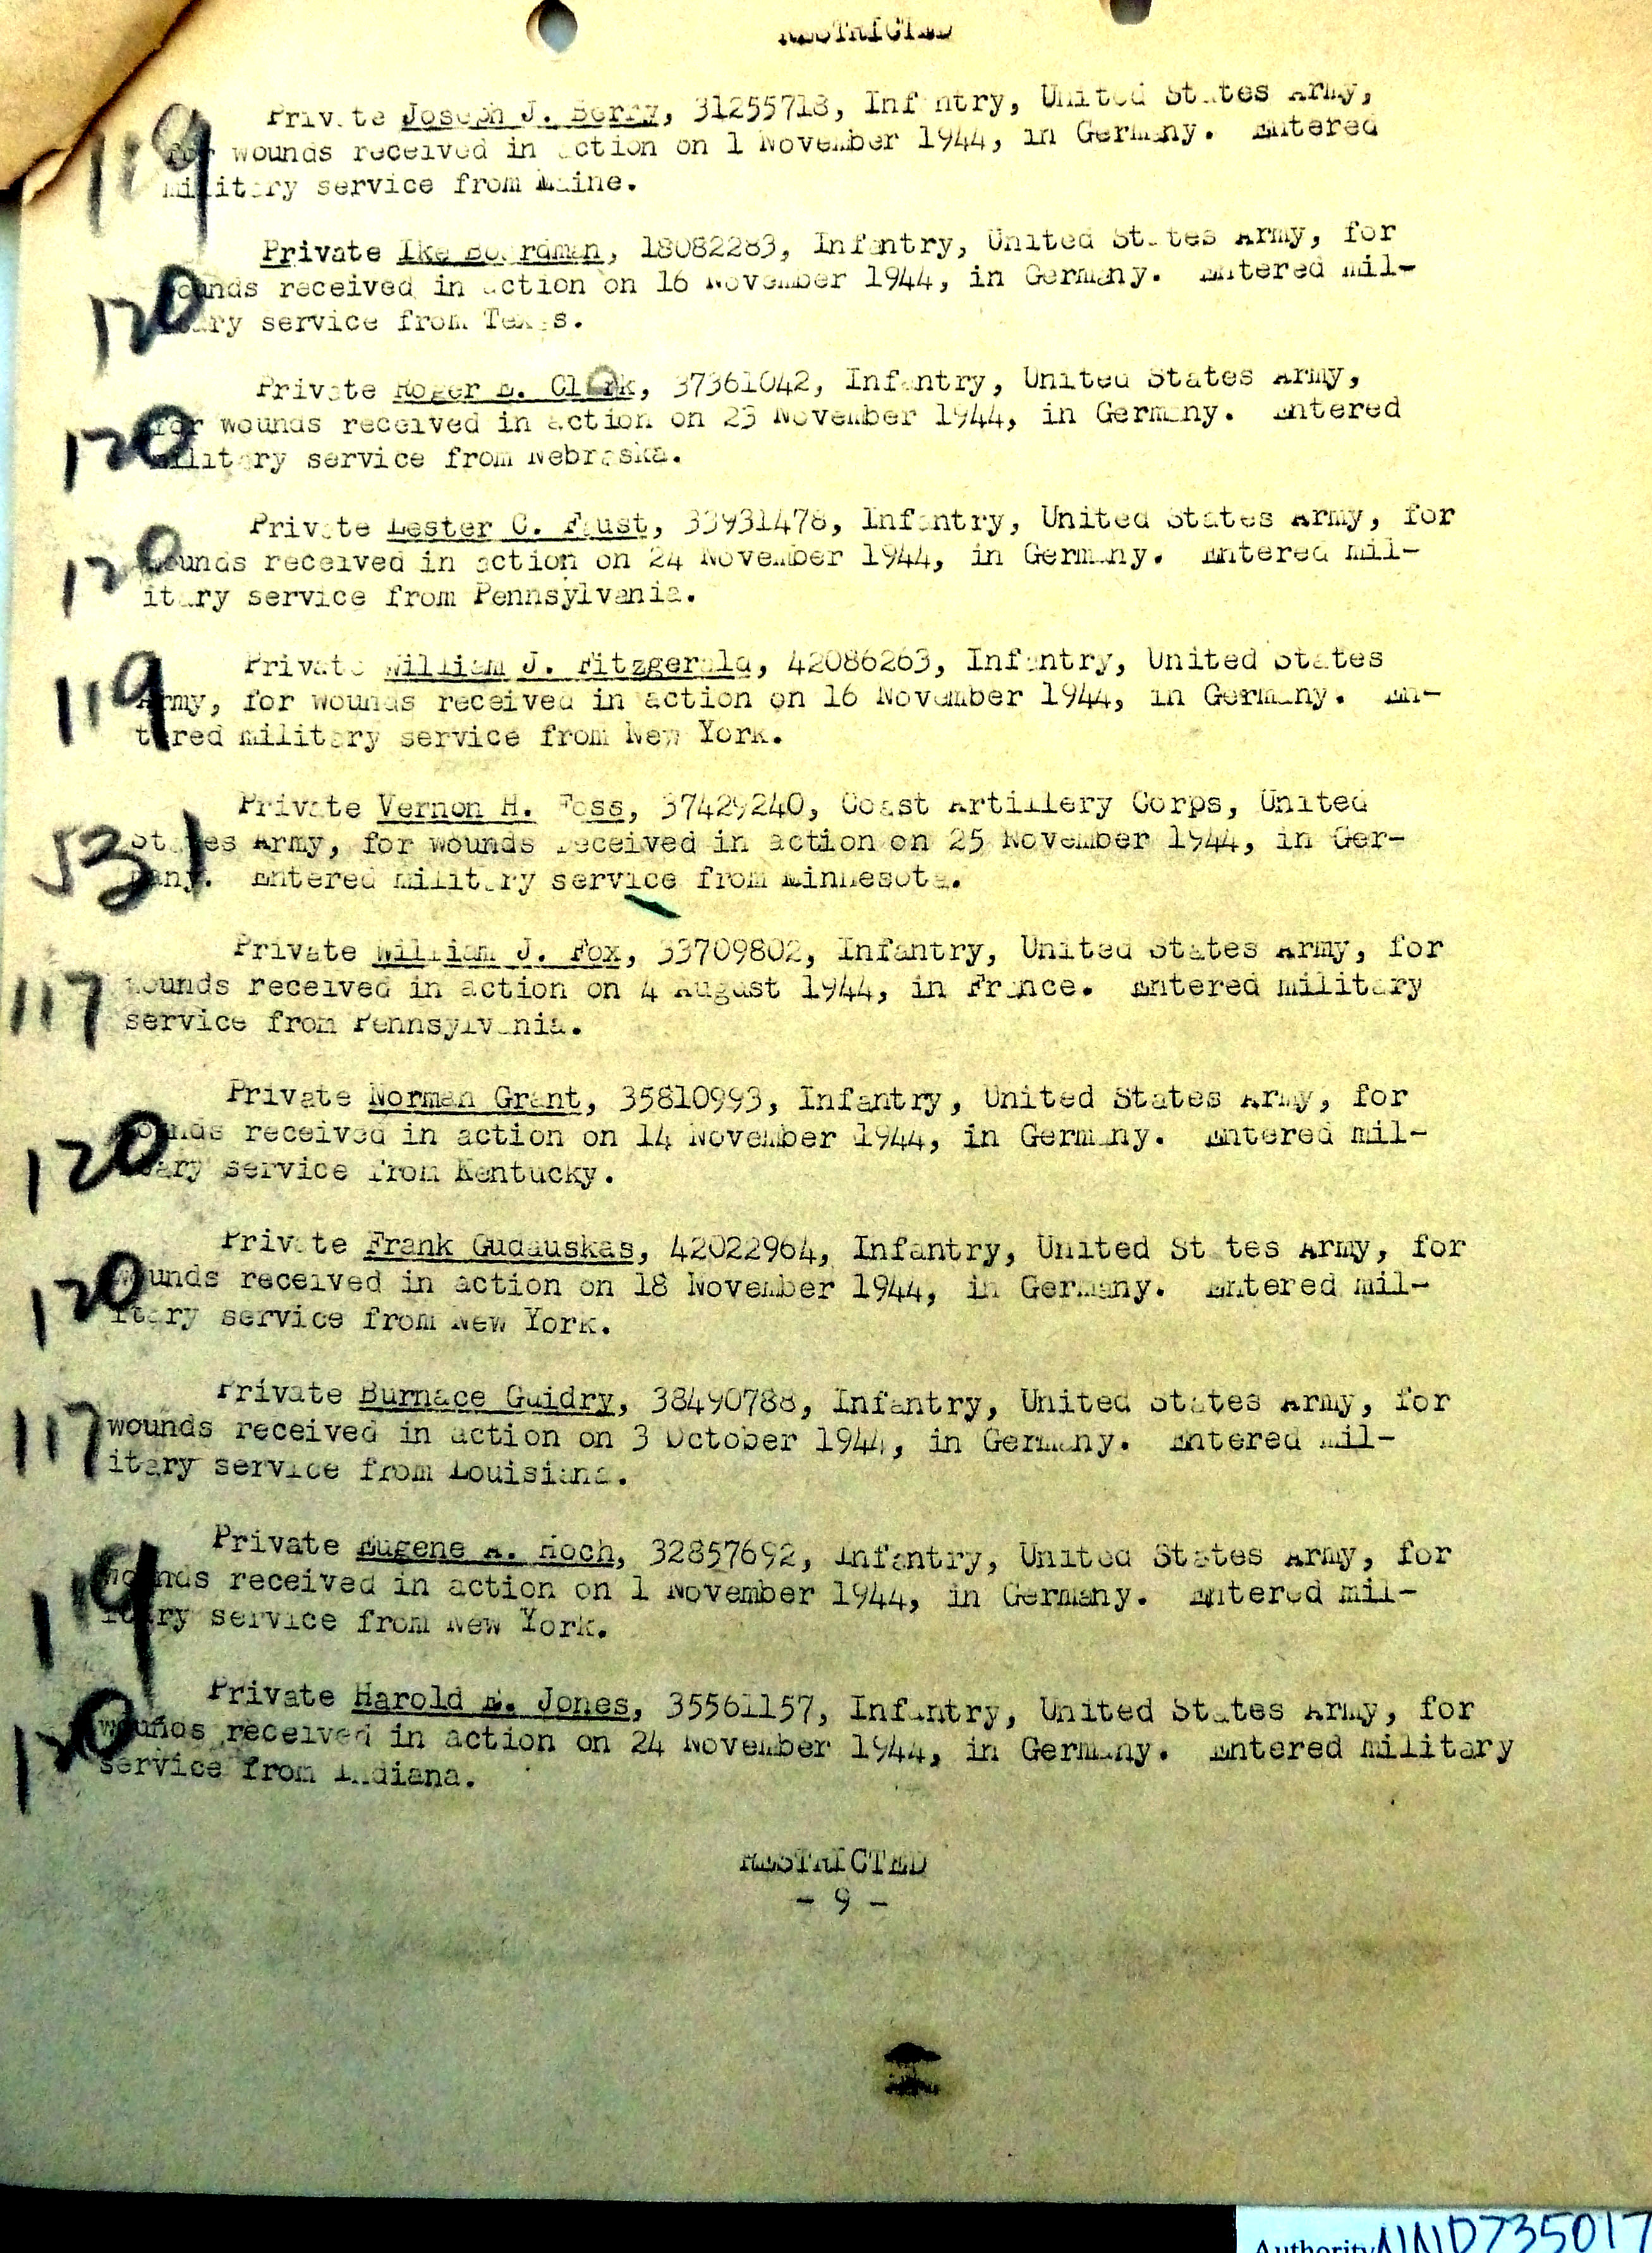 RESTRICTED
119
Private Joseph J. Berry, 31255718, Infantry, United States Army,
for wounds received in action on 1 November 1944, in Germany. Entered
military service from Maine.
120
Private Ike Boardman, 18082283, Infantry, United States Army, for
wounds received in action on 16 November 1944, in Germany. Entered mil-
itary service from Texas.
120
Private Roger E. Clark, 37361042, Infantry, United States Army,
for wounds received in action on 23 November 1944, in Germany. Entered
military service from Nebraska.
120
Private Lester C. Faust, 33931478, Infantry, United States Army, for
wounds received in action on 24 November 1944, in Germany. Entered mil-
itary service from Pennsylvania.
119
Private William J. Fitzgerald, 42086263, Infantry, United States
Army, for wounds received in action on 16 November 1944, in Germany. En-
tered military service from New York.
531
Private Vernon H. Foss, 37429240, Coast Artillery Corps, United
States Army, for wounds received in action on 25 November 1944, in Ger-
many. Entered military service from Minnesota.
117
Private William J. Fox, 33709802, Infantry, United States Army, for
wounds received in action on 4 August 1944, in France. Entered military
service from Pennsylvania.
120
Private Norman Grant, 35810993, Infantry, United States Army, for
wounds received in action on 14 November 1944, in Germany. Entered mil-
itary service from Kentucky.
120
Private Frank Gudauskas, 42022964, Infantry, United States Army, for
wounds received in action on 18 November 1944, in Germany. Entered mil-
itary service from New York.
117
Private Burnace Guidry, 38490788, Infantry, United States Army, for
wounds received in action on 3 October 1944, in Germany. Entered mil-
itary service from Louisiana.
119
Private Eugene A. Hoch, 32857692, Infantry, United States Army, for
wounds received in action on 1 November 1944, in Germany. Entered mil-
itary service from New York.
120
Private Harold E. Jones, 35561157, Infantry, United States Army, for
wounds received in action on 24 November 1944, in Germany. Entered military
service from Indiana.
RESTRICTED
- 9 -
Authority NND735017